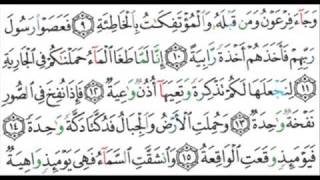 وَجَآءَ فِرْعَوْنُ وَمَن قَبْلَهُۥ وَٱلْمُؤْتَفِكَٰتُ بِٱلْخَاطِئَةِ ٩ فَعَصَوْا۟ رَسُولَ
رَبِّهِمْ فَأَخَذَهُمْ أَخْذَةً رَّابِيَةً ١٠ إِنَّا لَمَّا طَغَا ٱلْمَآءُ حَمَلْنَٰكُمْ فِى ٱلْجَارِيَةِ
١١ لِنَجْعَلَهَا لَكُمْ تَذْكِرَةً وَتَعِيَهَآ أُذُنٌ وَٰعِيَةٌ ١٢ فَإِذَا نُفِخَ فِى ٱلصُّورِ
نَفْخَةٌ وَٰحِدَةٌ ١٣ وَحُمِلَتِ ٱلْأَرْضُ وَٱلْجِبَالُ فَدُكَّتَا دَكَّةً وَٰحِدَةً ١٤
فَيَوْمَئِذٍ وَقَعَتِ ٱلْوَاقِعَةُ ١٥ وَٱنشَقَّتِ ٱلسَّمَآءُ فَهِىَ يَوْمَئِذٍ وَاهِيَةٌ